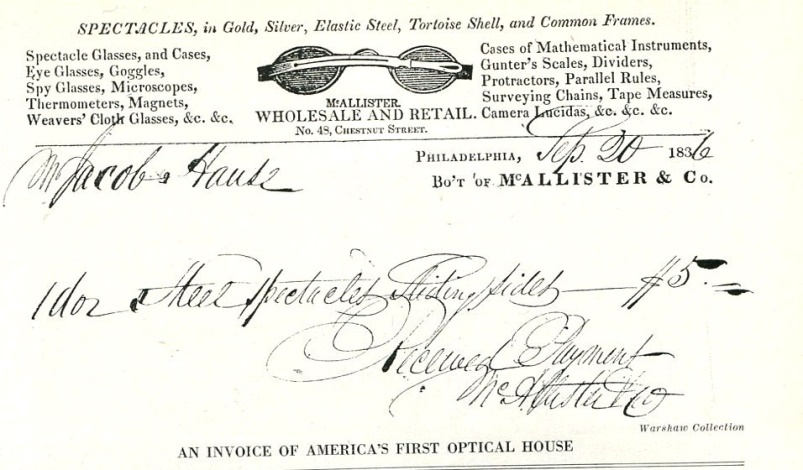 SPECTACLES, in Gold, Silver, Elastic Steel, Tortoise Shell, and Common Frames.
Spectacle Glasses, and Cases,
Eye Glasses, Goggles,
Spy Glasses, Microscopes,
Thermometers, Magnets,
Weavers' Cloth Glasses, &c. &c.
McALLISTER.
WHOLESALE AND RETAIL.
No. 48, CHESTNUT STREET.
Cases of Mathematical Instruments,
Gunter's Scales, Dividers,
Protractors, Parallel Rules,
Surveying Chains, Tape Measures,
Camera Lucidas, &c. &c. &c.
PHILADELPHIA, Sep. 20 1836
Mr Jacob Hausz
BO'T OF McALLISTER & Co.
1 doz Steel Spectacles Sliding sides $5.
Received Payment
McAllister & Co
Warshaw Collection
AN INVOICE OF AMERICA'S FIRST OPTICAL HOUSE